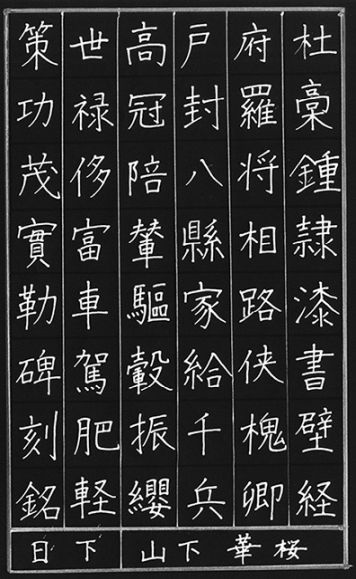 杜稾鍾隷漆書壁経
府羅将相路侠槐卿
戸封八縣家給千兵
高冠陪輦驅轂振纓
世禄侈富車駕肥軽
策功茂實勒碑刻銘
桜華下山
下日